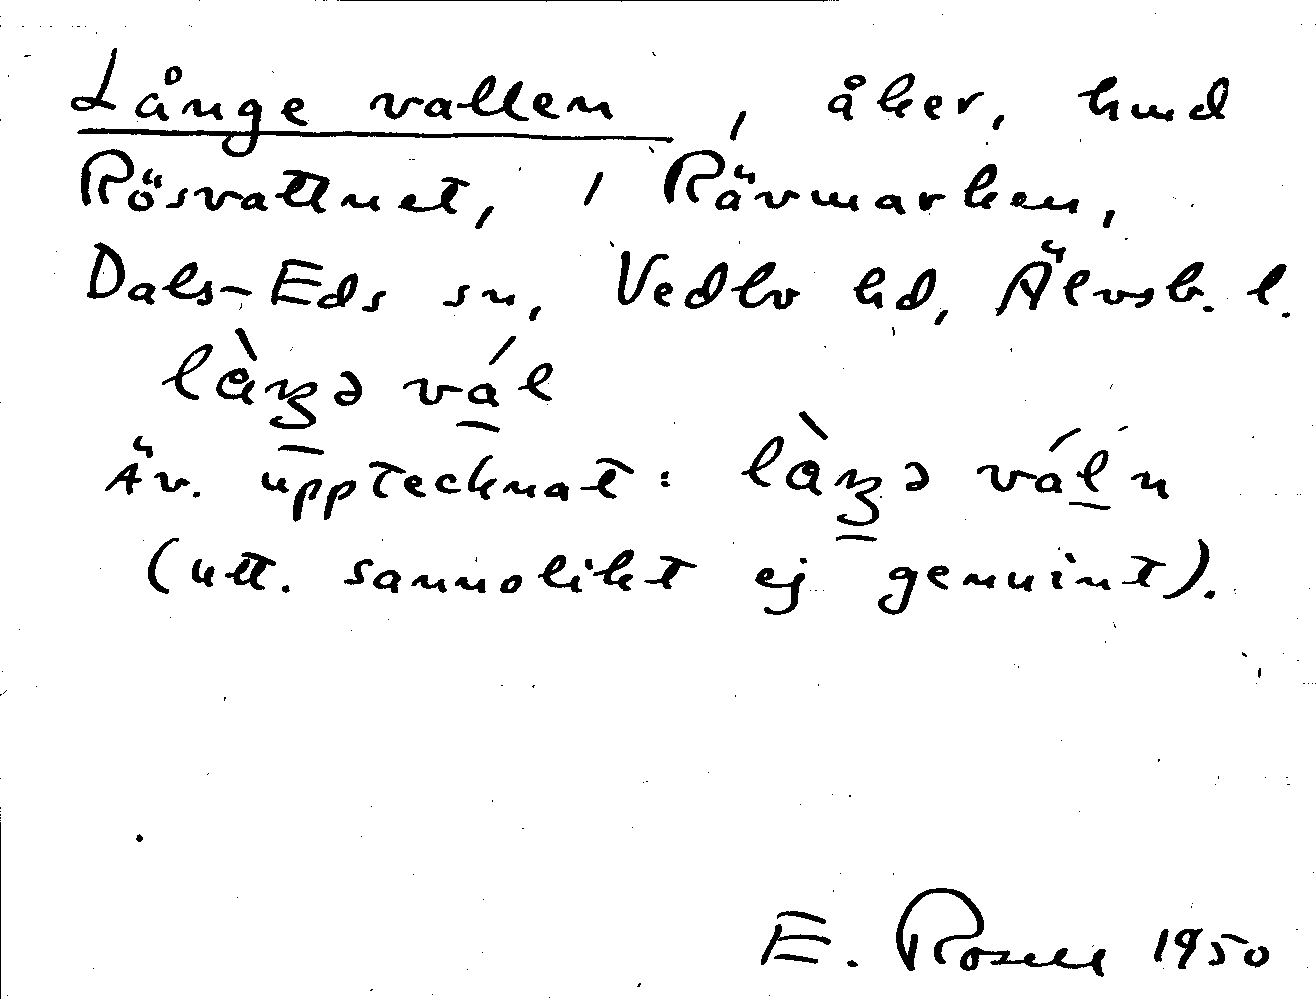 Långe vallen, åker, hmd
Rösvattnet, 1 Rävmarken,
Dals-Eds sn, Vedbo hd, Älvsb. l.
làŋə vál
Äv. upptecknat: làŋə váln
(utt. sannolikt ej genuint).
E. Rosell 1950